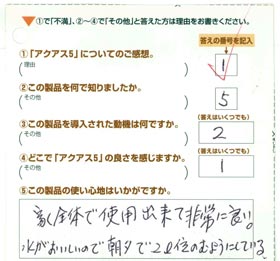 ①で「不満」、②～④で「その他」と答えた方は理由をお書きください。
答えの番号を記入
①「アクアス5」についてのご感想。
理由
1
②この製品を何で知りましたか。
その他
5
(答えはいくつでも)
③この製品を導入された動機は何ですか。
その他
2
(答えはいくつでも)
④どこで「アクアス5」の良さを感じますか。
その他
1
⑤この製品の使い心地はいかがですか。
家全体で使用出来て非常に良い。
水がおいしいので朝夕で2ℓ位のむようにしている